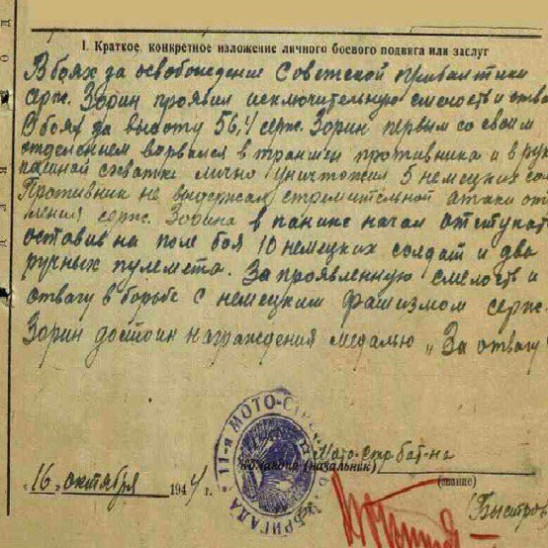 I. Краткое, конкретное изложение личного боевого подвига или заслуг
В боях за освобождение Советской прибалтики
серж. Зорин проявил исключительную смелость и отва
В боях за высоту 56,4 серж. Зорин первым со своим
отделением ворвался в траншеи противника и в рук
пашной схватке лично уничтожил 5 немецких сол
Противник не выдержал стремительной атаки от
ления серж. Зорина в панике начал отступат
оставив на поле боя 10 немецких солдат и два
ручных пулемета. За проявленную смелость и
отвагу в борьбе с немецким фашизмом серж.
Зорин достоин награждения медалью „За отвагу"
11-я МОТО-СТР БРИГАДА
Мото-стр бат-на
Командир (начальник)
„16„ октября 1944 г.
(звание)
(Быстров